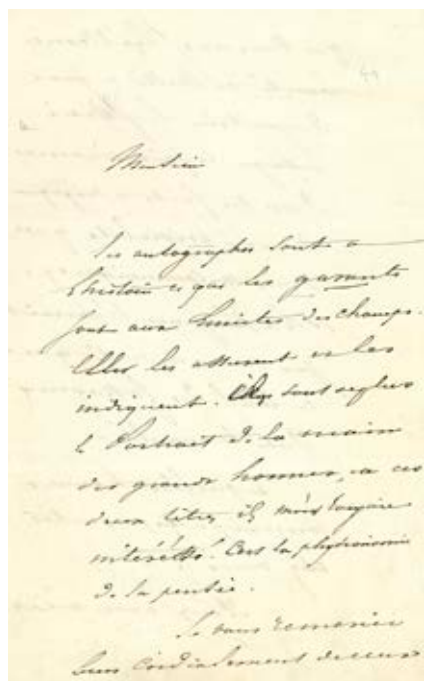 Monsieur
Les autographes sont a
l'histoire ce que les garants
sont aux limites des champs.
Elles les assurent et les
indiquent. sont de plus
le Portrait de la main
des grands hommes, a ces
deux titres ils m'ont toujours
intéressé. C'est la physionomie
de la pensée.
Je vous remercie
bien cordialement